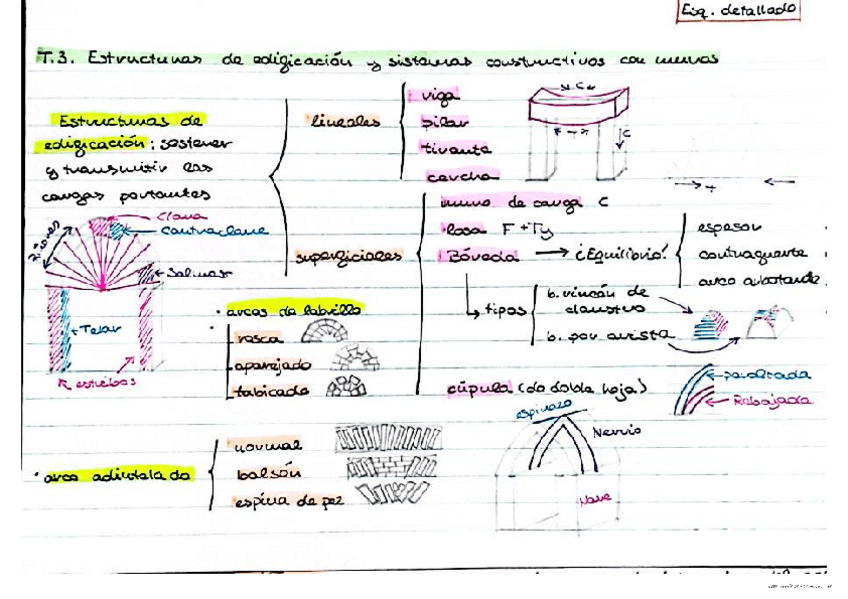 Esq. detallado
T.3. Estructuras de edificación y sistemas constructivos con muros
Estructuras de
edificación: sostener
y transmitir las
cargas portantes
lineales
viga
pilar
tirante
cercha
C
T
C
T
superficiales
muro de carga C
losa F + Ty
Bóveda → ¿Equilibrio?
espesor
contrafuerte
arco arbotante
tipos
b. rincón de
claustro
b. por arista
cúpula (do doble hoja)
peraltada
Rebajada
Clave
Contraclave
Riñones
Salmer
Telar
estribos
• arcos de ladrillo
rosca
aparejado
tabicado
• arco adintelado
normal
balsón
espina de pez
espinazo
Nervio
Nave